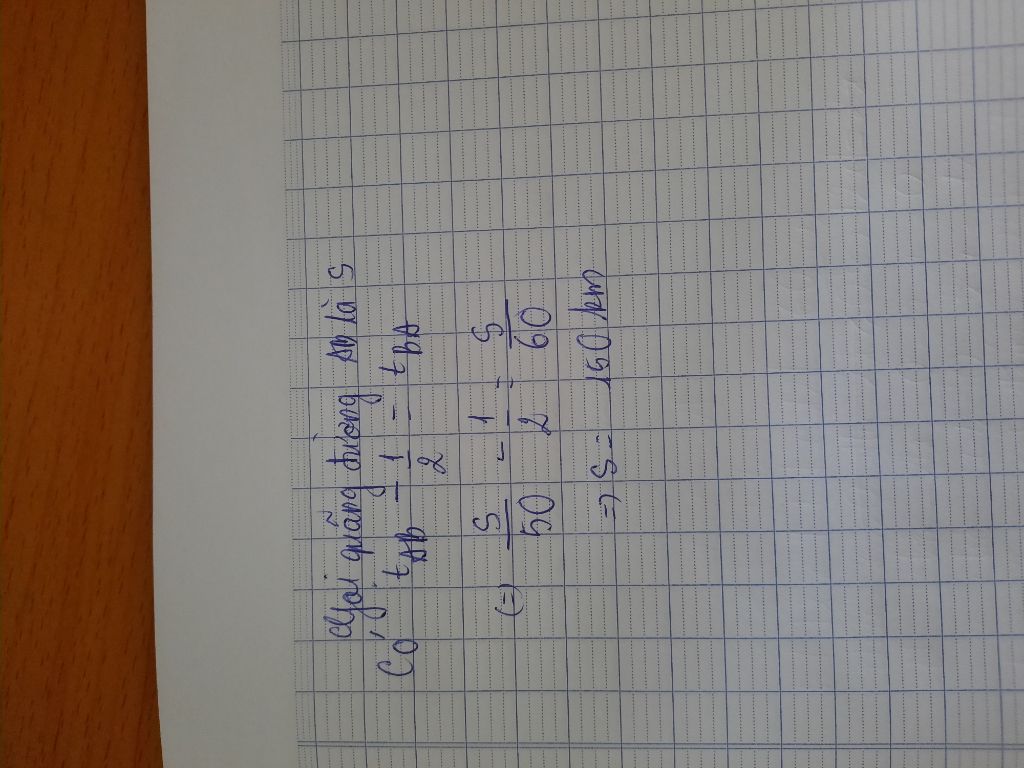 Gọi quãng đường AB là S
Có t_AB - 1/2 = t_BA
(=) S/50 - 1/2 = S/60
=) S = 150 km